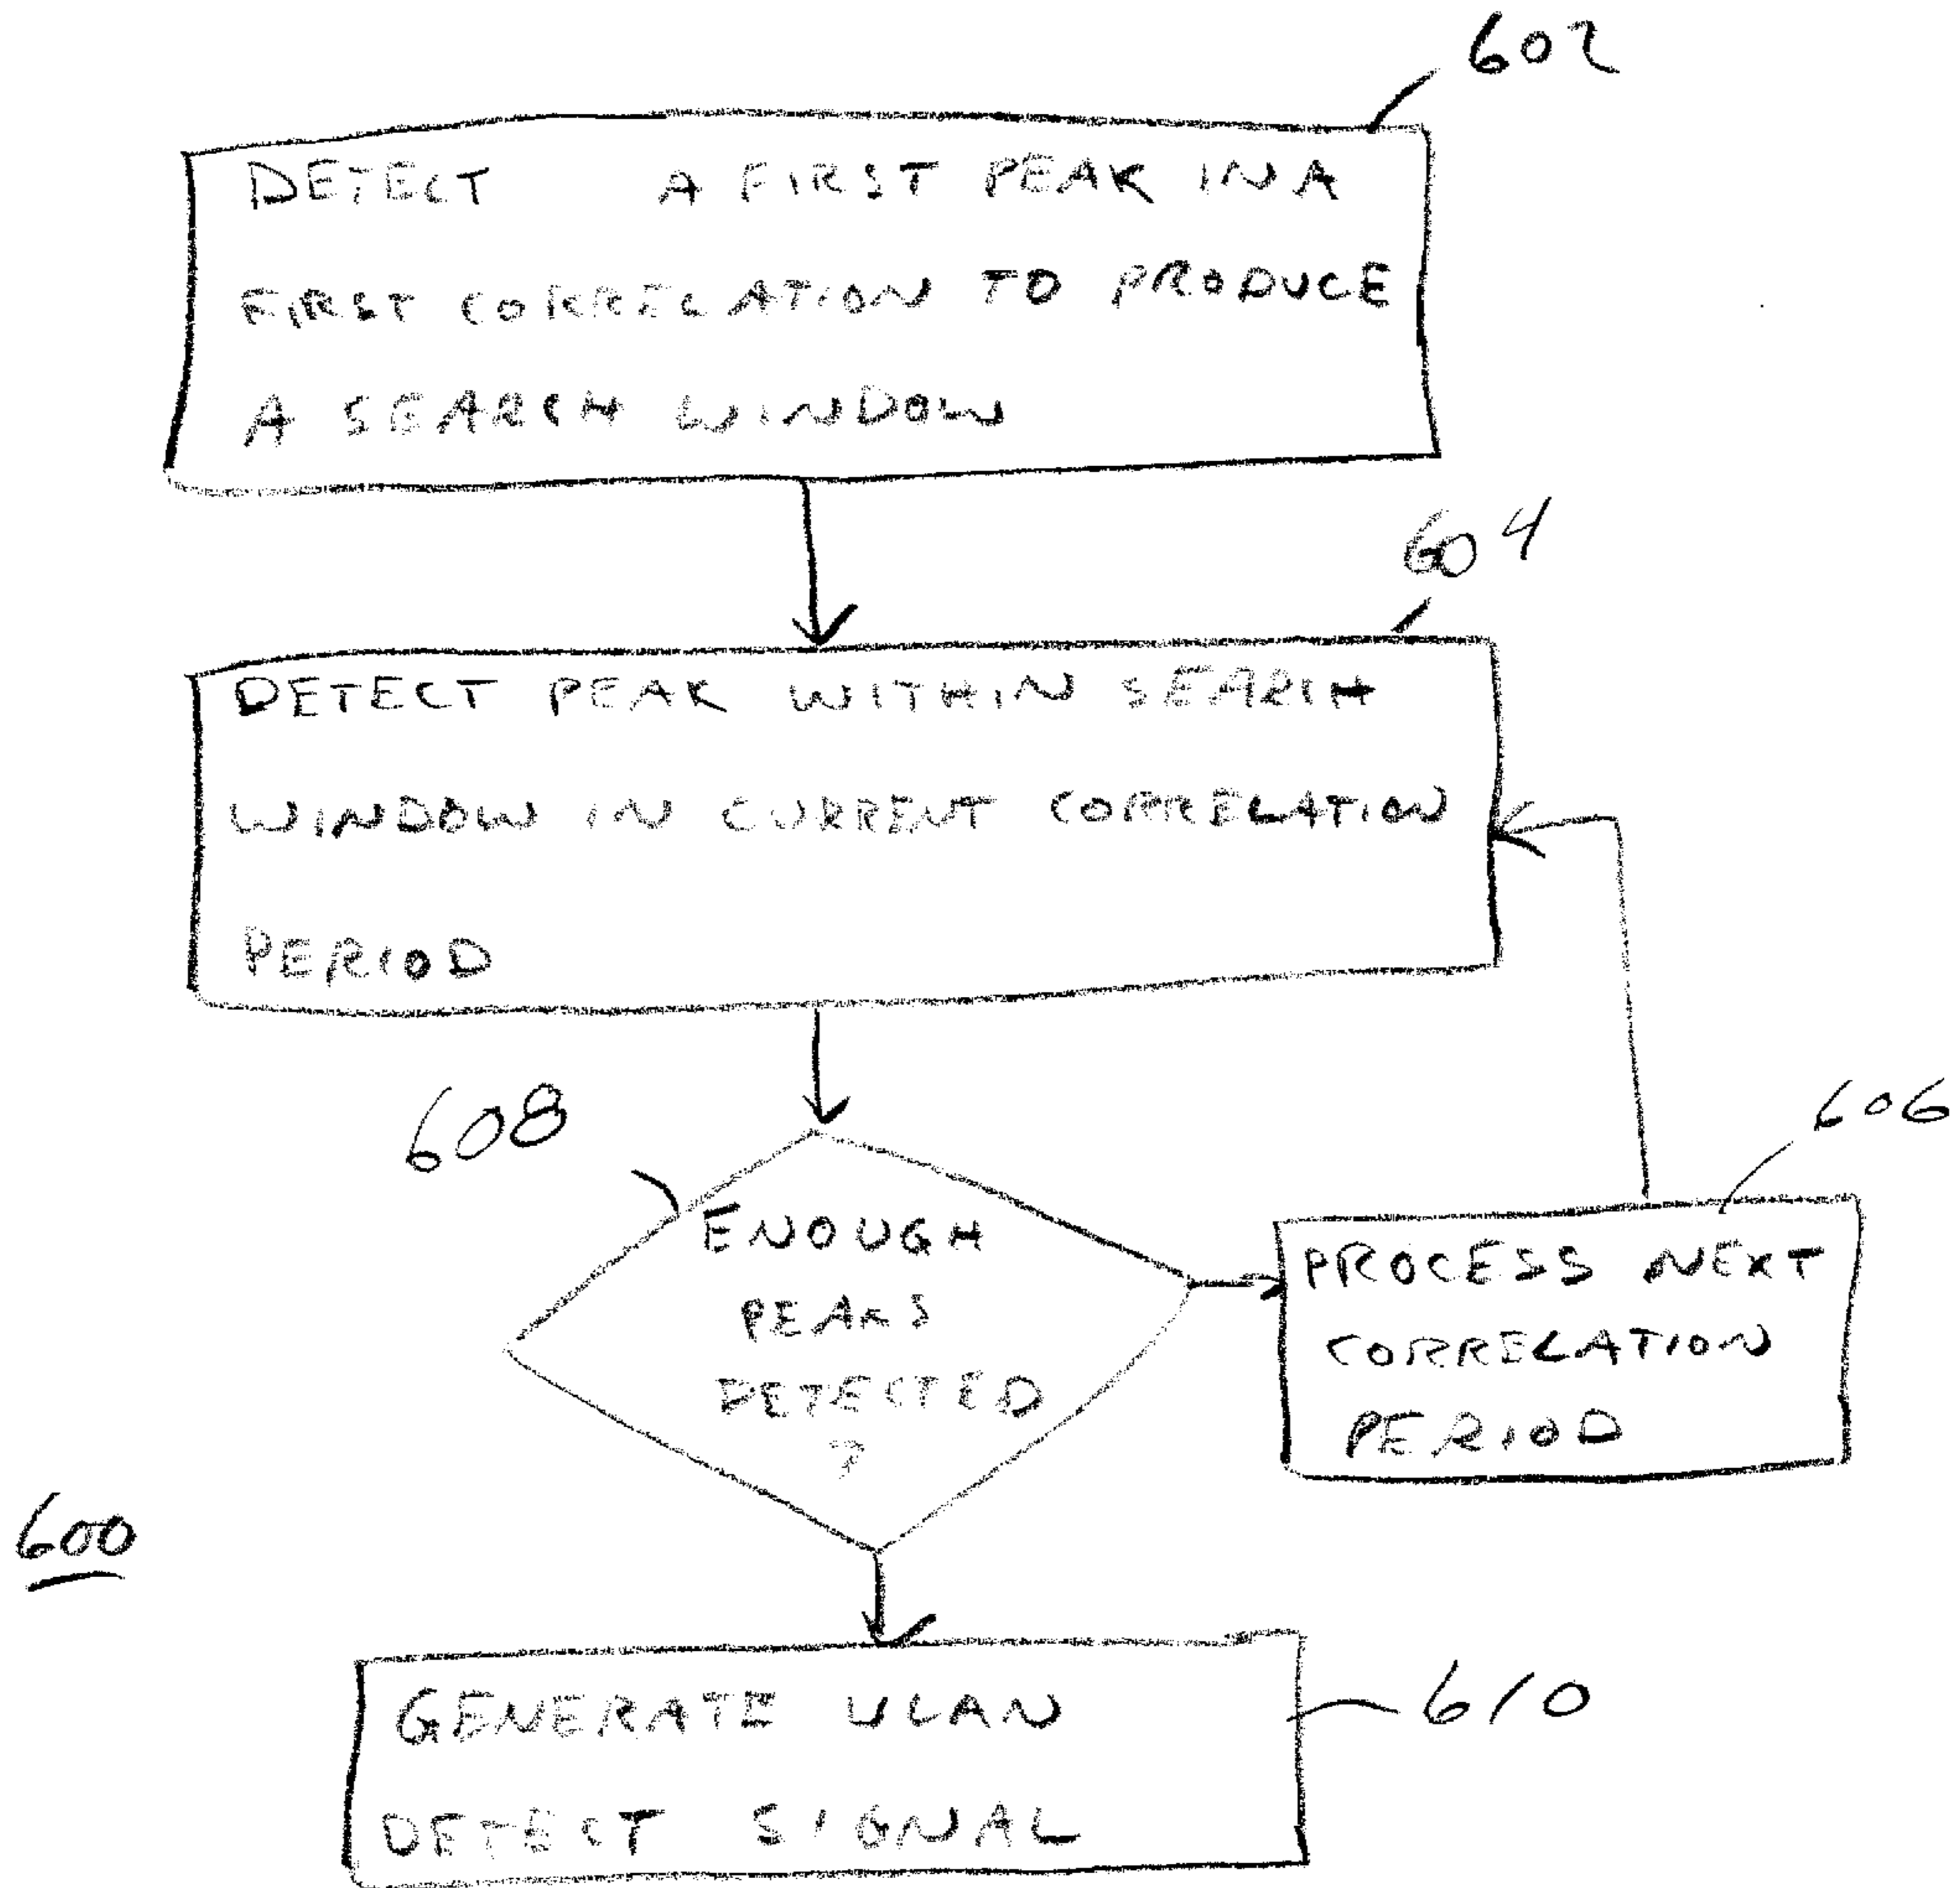 602
DETECT A FIRST PEAK IN A
FIRST CORRELATION TO PRODUCE
A SEARCH WINDOW
604
DETECT PEAK WITHIN SEARCH
WINDOW IN CURRENT CORRELATION
PERIOD
608
ENOUGH
PEAKS
DETECTED
?
606
PROCESS NEXT
CORRELATION
PERIOD
600
GENERATE WLAN
DETECT SIGNAL
610